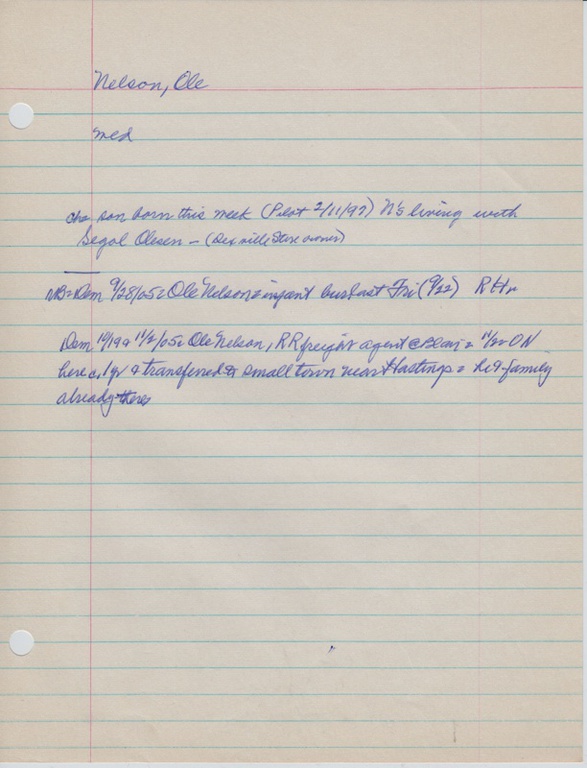 Nelson, Ole
med
cho son born this week (Pilot 2/11/97) N's living with
Segol Olesen - (Dexville Store owner)
NB = Dem 9/28/05 = Ole Nelson = infant bur last Fri (9/22) R Hr
Dem 10/19 & 11/2/05 = Ole Nelson, RR freight agent @ Blair = 11/2 = ON
here c. 1 yr & transferred to small town near Hastings = he & family
already there